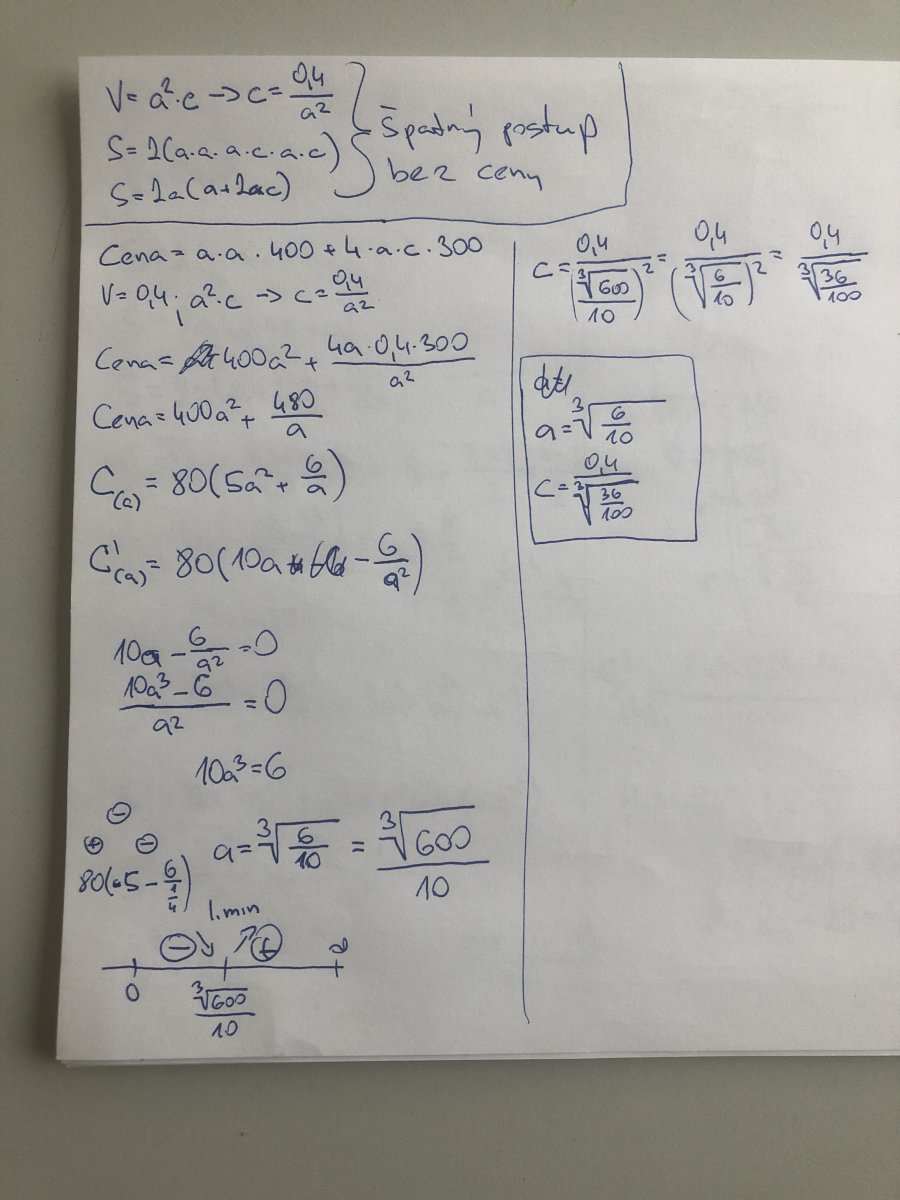 V = a²·c → c = 0,4/a²
S = 2(a·a·a·c·a·c)
S = 2a(a+2c)
Špatný postup
bez ceny
Cena = a·a·400 + 4·a·c·300
V = 0,4; a²·c → c = 0,4/a²
Cena = 400a² + 4a·0,4·300/a²
Cena = 400a² + 480/a
C(a) = 80(5a² + 6/a)
C'(a) = 80(10a - 6/a²)
10a - 6/a² = 0
(10a³ - 6)/a² = 0
10a³ = 6
a = ³√(6/10) = ³√600/10
⊖
⊕ ⊖
80(5 - 6/(1/4))
l.min
⊖ ↘ ↗ ⊕
0 ³√600/10 ∞
c = 0,4/(³√600/10)² = 0,4/(³√(6/10))² = 0,4/³√(36/100)
a = ³√(6/10)
c = 0,4/³√(36/100)